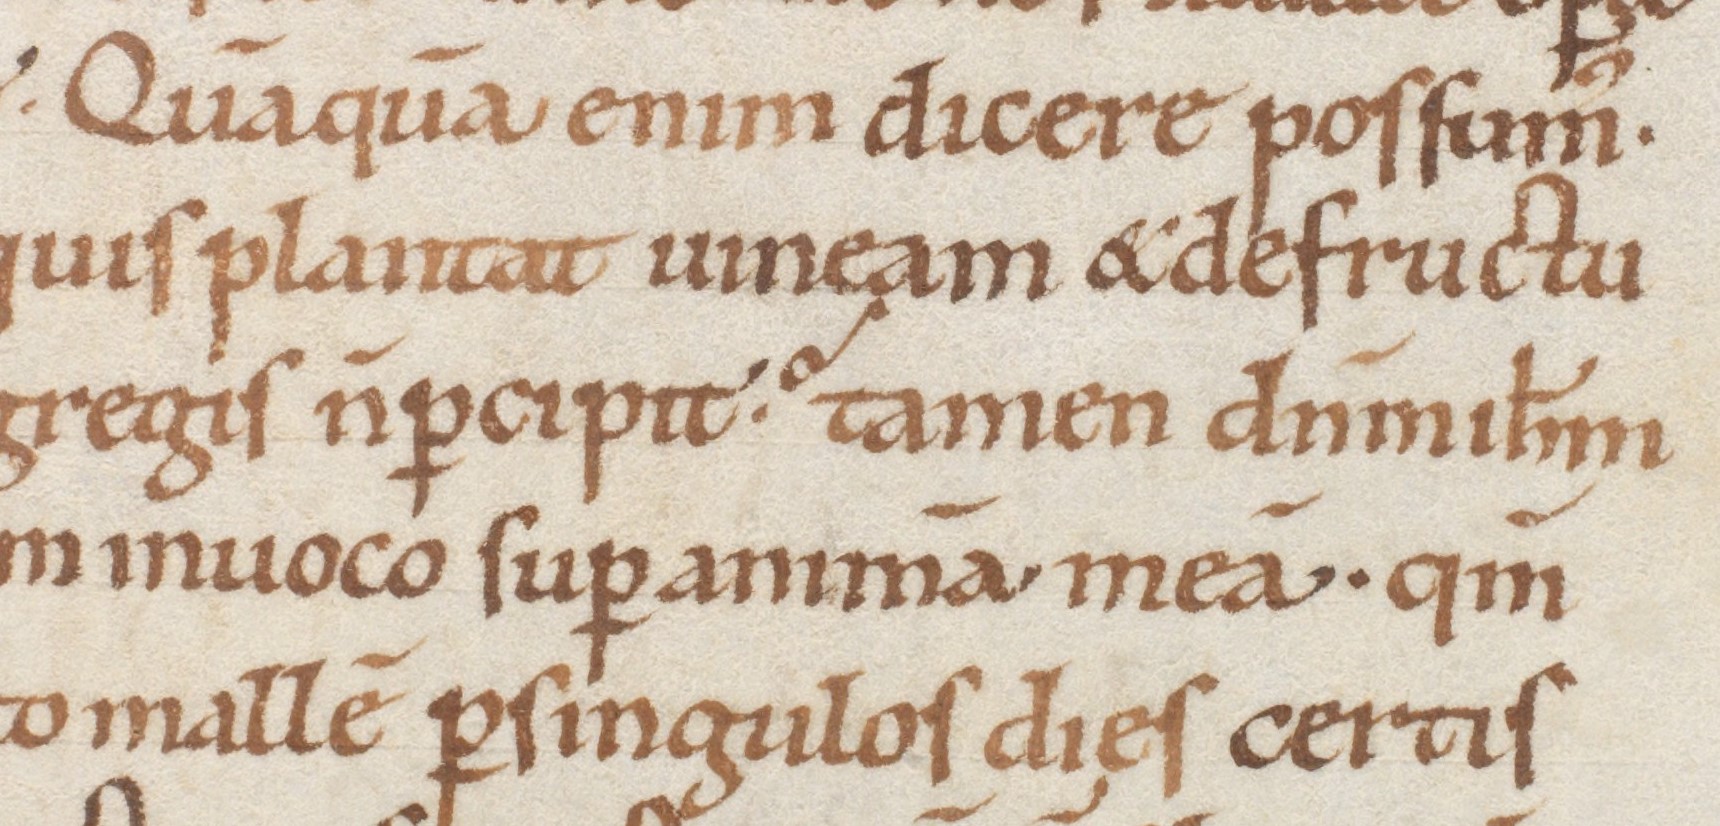 Quāquā enim dicere possum̄.
quis plantat uineam & defructu
gregis n̄ ꝑcipit. tamen dn̄m ihm̄
m inuoco suꝑ animā meā. qm̄
to mallē ꝑsingulos dięs certis